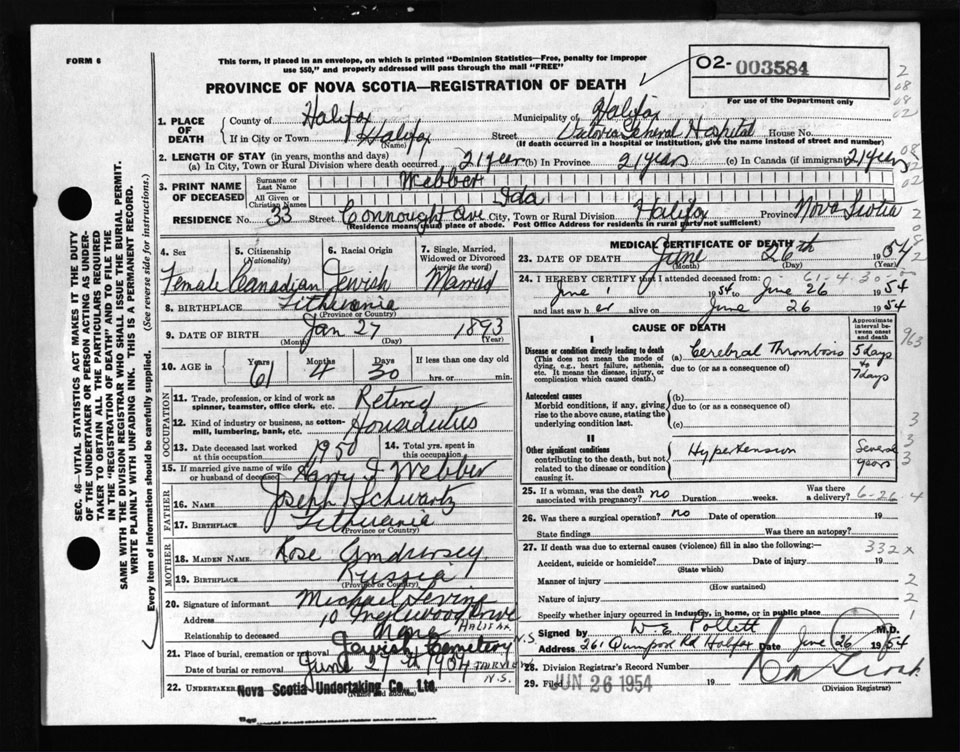 FORM 6
This form, if placed in an envelope, on which is printed "Dominion Statistics—Free, penalty for improper
use $50," and properly addressed will pass through the mail "FREE"
PROVINCE OF NOVA SCOTIA—REGISTRATION OF DEATH
02- 003584
For use of the Department only
1. PLACE OF DEATH
County of Halifax Municipality of Halifax
If in City or Town Halifax (Name) Street Victoria General Hospital House No.
(If death occurred in a hospital or institution, give the name instead of street and number)
2. LENGTH OF STAY (in years, months and days)
(a) In City, Town or Rural Division where death occurred, 21 years (b) In Province 21 years (c) In Canada (if immigrant) 21 years
3. PRINT NAME OF DECEASED
Surname or Last Name Webber
All Given or Christian Names Ida
RESIDENCE No. 33 Street Connought Ave City, Town or Rural Division Halifax Province Nova Scotia
(Residence means usual place of abode. Post Office Address for residents in rural parts not sufficient)
4. Sex
Female
5. Citizenship (Nationality)
Canadian
6. Racial Origin
Jewish
7. Single, Married, Widowed or Divorced (write the word)
Married
8. BIRTHPLACE Lithuania
(Province or Country)
9. DATE OF BIRTH Jan 27 1893
(Month) (Day) (Year)
10. AGE in Years 61 Months 4 Days 30 If less than one day old
hrs. or min.
OCCUPATION
11. Trade, profession, or kind of work as spinner, teamster, office clerk, etc. Retired
12. Kind of industry or business, as cotton-mill, lumbering, bank, etc. Houseduties
13. Date deceased last worked at this occupation 1950
14. Total yrs. spent in this occupation
15. If married give name of wife or husband of deceased Harry I Webber
FATHER
16. Name Joseph Schwartz
17. Birthplace Lithuania
(Province or Country)
MOTHER
18. MAIDEN NAME Rose
19. BIRTHPLACE Russia
(Province or Country)
20. Signature of informant Michael Levine
Address 10 Inglewood Drive HALIFAX
Relationship to deceased None N.S.
21. Place of burial, cremation or removal Jewish Cemetery
Date of burial or removal June 27th 1954 FAIRVIEW
N.S.
22. UNDERTAKER Nova Scotia Undertaking Co., Ltd.
MEDICAL CERTIFICATE OF DEATH
23. DATE OF DEATH June 26th 1954
(Month) (Day) (Year)
61-4-30
24. I HEREBY CERTIFY that I attended deceased from
June 1 1954 to June 26 1954
and last saw her alive on June 26 1954
CAUSE OF DEATH
Approximate interval between onset and death
I
Disease or condition directly leading to death
(This does not mean the mode of dying, e.g., heart failure, asthenia, etc. It means the disease, injury, or complication which caused death.)
(a) Cerebral Thrombosis 5 days to 7 days
due to (or as a consequence of)
Antecedent causes
Morbid conditions, if any, giving rise to the above cause, stating the underlying condition last.
(b)
due to (or as a consequence of)
(c)
II
Other significant conditions
contributing to the death, but not related to the disease or condition causing it.
Hypertension Several years
25. If a woman, was the death associated with pregnancy? no Duration weeks. Was there a delivery? 6-26
26. Was there a surgical operation? no Date of operation 19
State findings Was there an autopsy?
27. If death was due to external causes (violence) fill in also the following:— 332x
Accident, suicide or homicide? Date of injury 19
(State which)
Manner of injury
(How sustained)
Nature of injury
Specify whether injury occurred in industry, in home, or in public place
Signed by W E Pollett M.D.
Address 261 Quinpool Rd Halifax Date June 26 1954
28. Division Registrar's Record Number
29. Filed JUN 26 1954 19
(Division Registrar)
SEC. 46—VITAL STATISTICS ACT MAKES IT THE DUTY
OF THE UNDERTAKER OR PERSON ACTING AS UNDER-
TAKER TO OBTAIN ALL THE PARTICULARS REQUIRED
IN THE "REGISTRATION OF DEATH" AND TO FILE THE
SAME WITH THE DIVISION REGISTRAR WHO SHALL ISSUE THE BURIAL PERMIT.
WRITE PLAINLY WITH UNFADING INK. THIS IS A PERMANENT RECORD.
Every item of information should be carefully supplied. (See reverse side for instructions.)
2
08
08
02
08
02
02
2
08
2
963
3
3
3
4
2
2
1